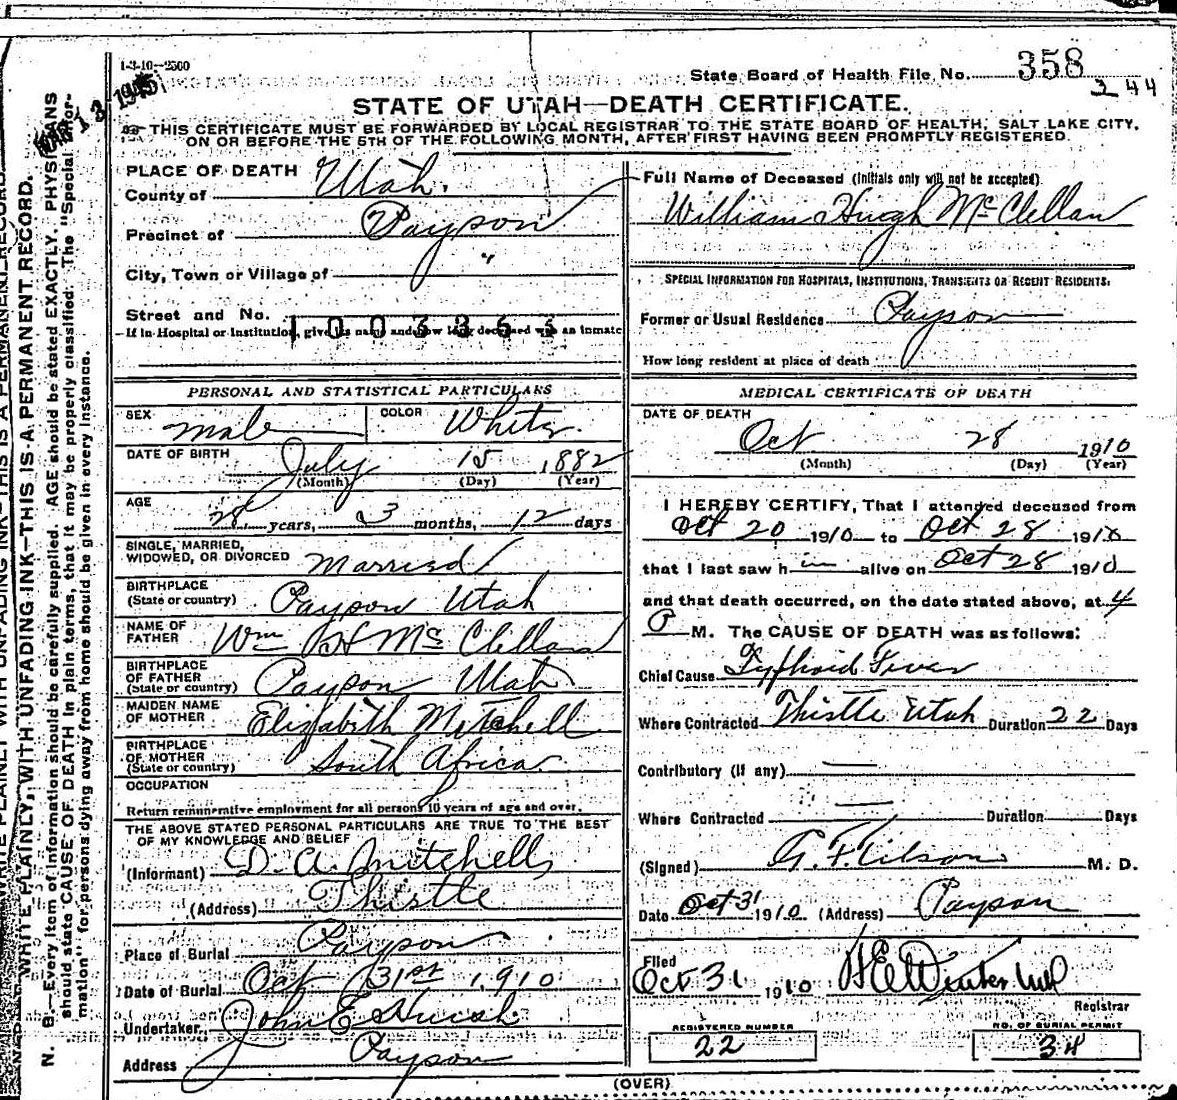 1-3-10-2500
State Board of Health File No. 358
344
STATE OF UTAH—DEATH CERTIFICATE.
THIS CERTIFICATE MUST BE FORWARDED BY LOCAL REGISTRAR TO THE STATE BOARD OF HEALTH, SALT LAKE CITY,
ON OR BEFORE THE 5TH OF THE FOLLOWING MONTH, AFTER FIRST HAVING BEEN PROMPTLY REGISTERED.
WRITE PLAINLY, WITH UNFADING INK—THIS IS A PERMANENT RECORD.
N. B.—Every item of information should be carefully supplied. AGE should be stated EXACTLY. PHYSICIANS
should state CAUSE OF DEATH in plain terms, that it may be properly classified. The "Special Infor-
mation" for persons dying away from home should be given in every instance.
PLACE OF DEATH
County of Utah.
Precinct of Payson
City, Town or Village of "
Street and No.
1003265
If in Hospital or Institution, give its name and how long deceased was an inmate
PERSONAL AND STATISTICAL PARTICULARS
SEX male COLOR White
DATE OF BIRTH July 15 1882
(Month) (Day) (Year)
AGE 28 years, 3 months, 12 days
SINGLE, MARRIED,
WIDOWED, OR DIVORCED Married
BIRTHPLACE
(State or country) Payson Utah
NAME OF
FATHER Wm H Mc Clellan
BIRTHPLACE
OF FATHER
(State or country) Payson Utah
MAIDEN NAME
OF MOTHER Elizabeth Mitchell
BIRTHPLACE
OF MOTHER
(State or country) South Africa
OCCUPATION
Return remunerative employment for all persons 10 years of age and over.
THE ABOVE STATED PERSONAL PARTICULARS ARE TRUE TO THE BEST
OF MY KNOWLEDGE AND BELIEF
(Informant) D. A. Mitchell
(Address) Thistle
Place of Burial Payson
Date of Burial Oct 31st 1910
Undertaker, John E Huish
Address Payson
Full Name of Deceased (Initials only will not be accepted)
William Hugh Mc Clellan
SPECIAL INFORMATION FOR HOSPITALS, INSTITUTIONS, TRANSIENTS OR RECENT RESIDENTS.
Former or Usual Residence Payson
How long resident at place of death
MEDICAL CERTIFICATE OF DEATH
DATE OF DEATH
Oct 28 1910
(Month) (Day) (Year)
I HEREBY CERTIFY, That I attended deceased from
Oct 20 1910 to Oct 28 1910
that I last saw him alive on Oct 28 1910
and that death occurred, on the date stated above, at 4
P M. The CAUSE OF DEATH was as follows:
Chief Cause Typhoid Fever
Where Contracted Thistle Utah Duration 22 Days
Contributory (if any)
Where Contracted Duration Days
(Signed) M. D.
Date Oct 31 1910 (Address) Payson
Filed
Oct 31 1910
Registrar
REGISTERED NUMBER
22
NO. OF BURIAL PERMIT
34
(OVER)